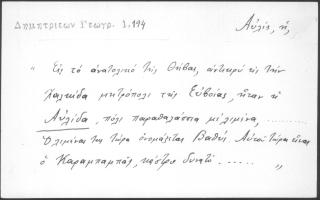 Δημητριεων Γεωγρ. 1.194
Αὐλίς, ἡ,
" Εἰς τὸ ἀνατολικὸ τῆς Θήβας, ἀντικρὺ εἰς τὴν
Χαλκίδα μητρόπολι τῆς Εὐβοίας, ἦταν ἡ
Αὐλίδα, πόλι παραθαλάσσια μὲ λιμένα, ..........
Ὁ λιμένας της τώρα ὀνομάζεται Βαθύ. Αὐτοῦ τώρα εἶναι
ὁ Καραμπαμπᾶς, κάστρο δυνατό ........... "